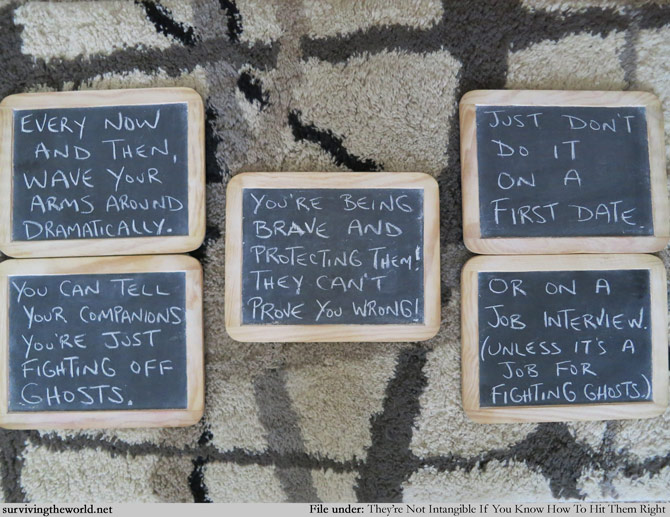 EVERY NOW
AND THEN,
WAVE YOUR
ARMS AROUND
DRAMATICALLY.
YOU CAN TELL
YOUR COMPANIONS
YOU'RE JUST
FIGHTING OFF
GHOSTS.
YOU'RE BEING
BRAVE AND
PROTECTING THEM!
THEY CAN'T
PROVE YOU WRONG!
JUST DON'T
DO IT
ON A
FIRST DATE.
OR ON A
JOB INTERVIEW.
(UNLESS IT'S A
JOB FOR
FIGHTING GHOSTS.)
survivingtheworld.net
File under: They're Not Intangible If You Know How To Hit Them Right